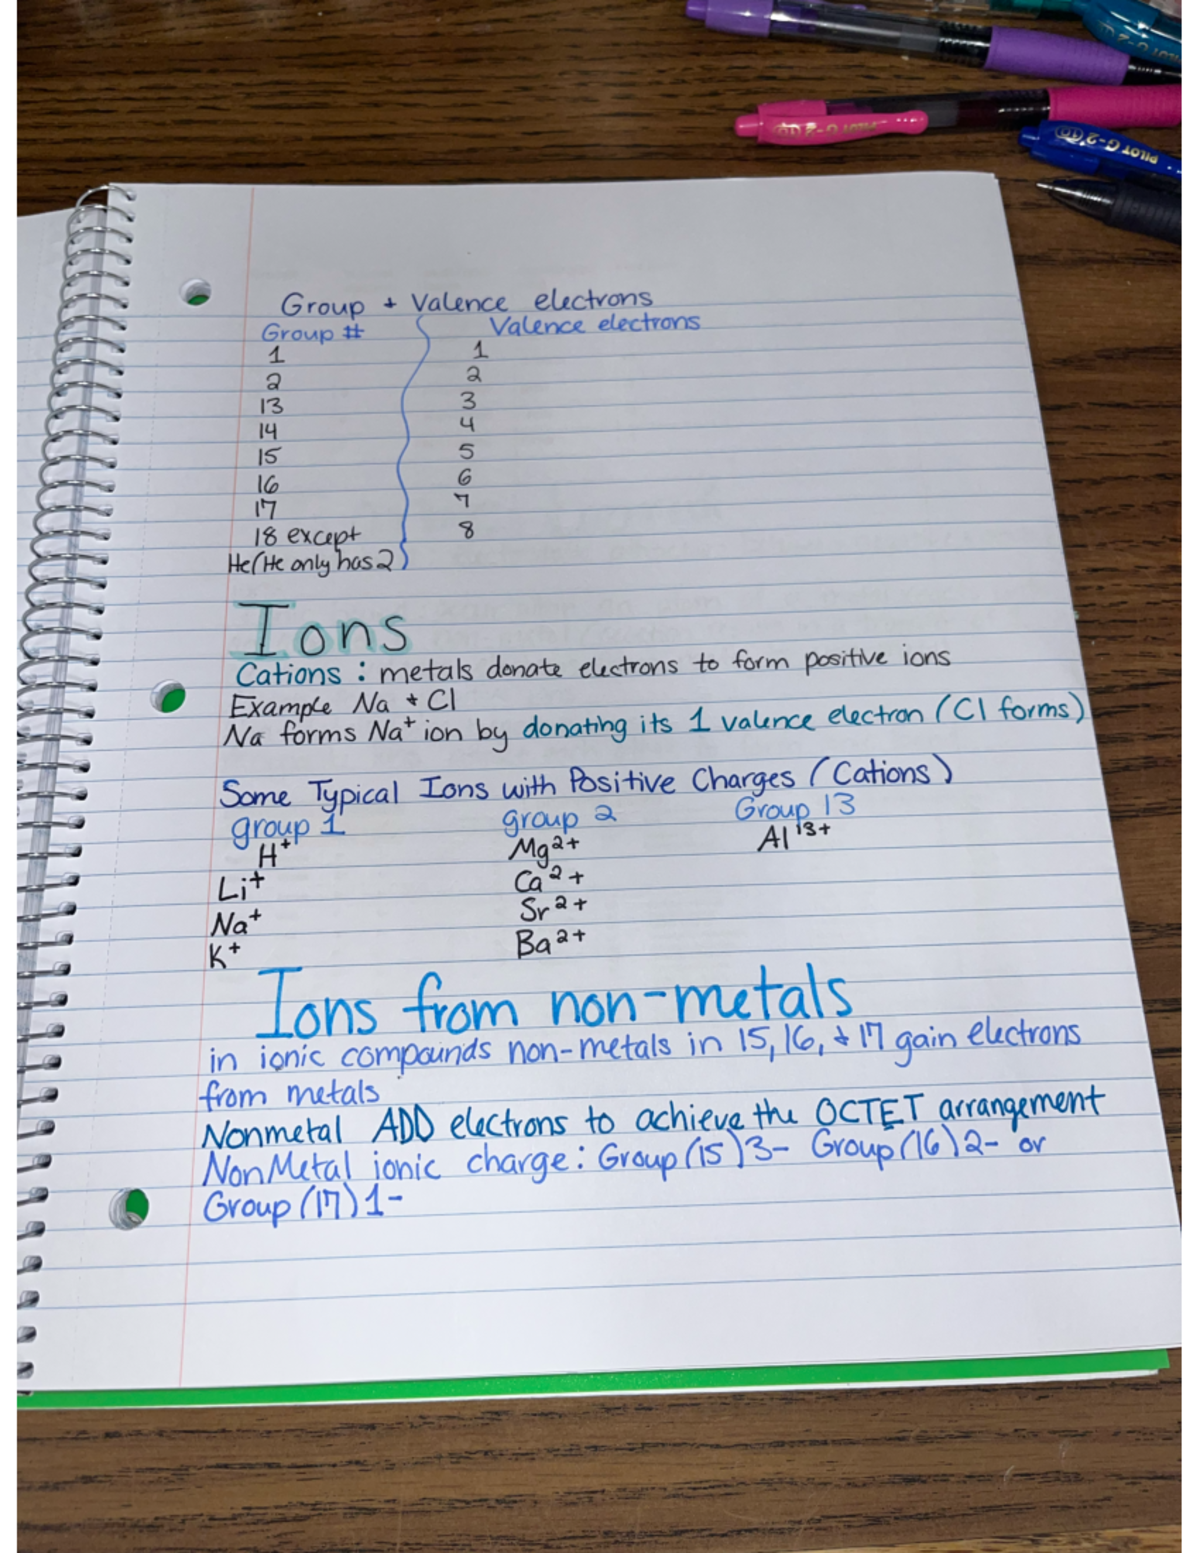 PILOT G-2
G-2 10
PILOT G-2 10
Group + Valence electrons
Group # Valence electrons
1 1
2 2
13 3
14 4
15 5
16 6
17 7
18 except 8
He (He only has 2)
Ions
Cations : metals donate electrons to form positive ions
Example Na + Cl
Na forms Na⁺ ion by donating its 1 valence electron (Cl forms)
Some Typical Ions with Positive Charges (Cations)
group 1 group 2 Group 13
H⁺ Mg²⁺ Al¹³⁺
Li⁺ Ca²⁺
Na⁺ Sr²⁺
K⁺ Ba²⁺
Ions from non-metals
in ionic compounds non-metals in 15, 16, + 17 gain electrons
from metals
Nonmetal ADD electrons to achieve the OCTET arrangement
NonMetal ionic charge : Group (15) 3- Group (16) 2- or
Group (17) 1-